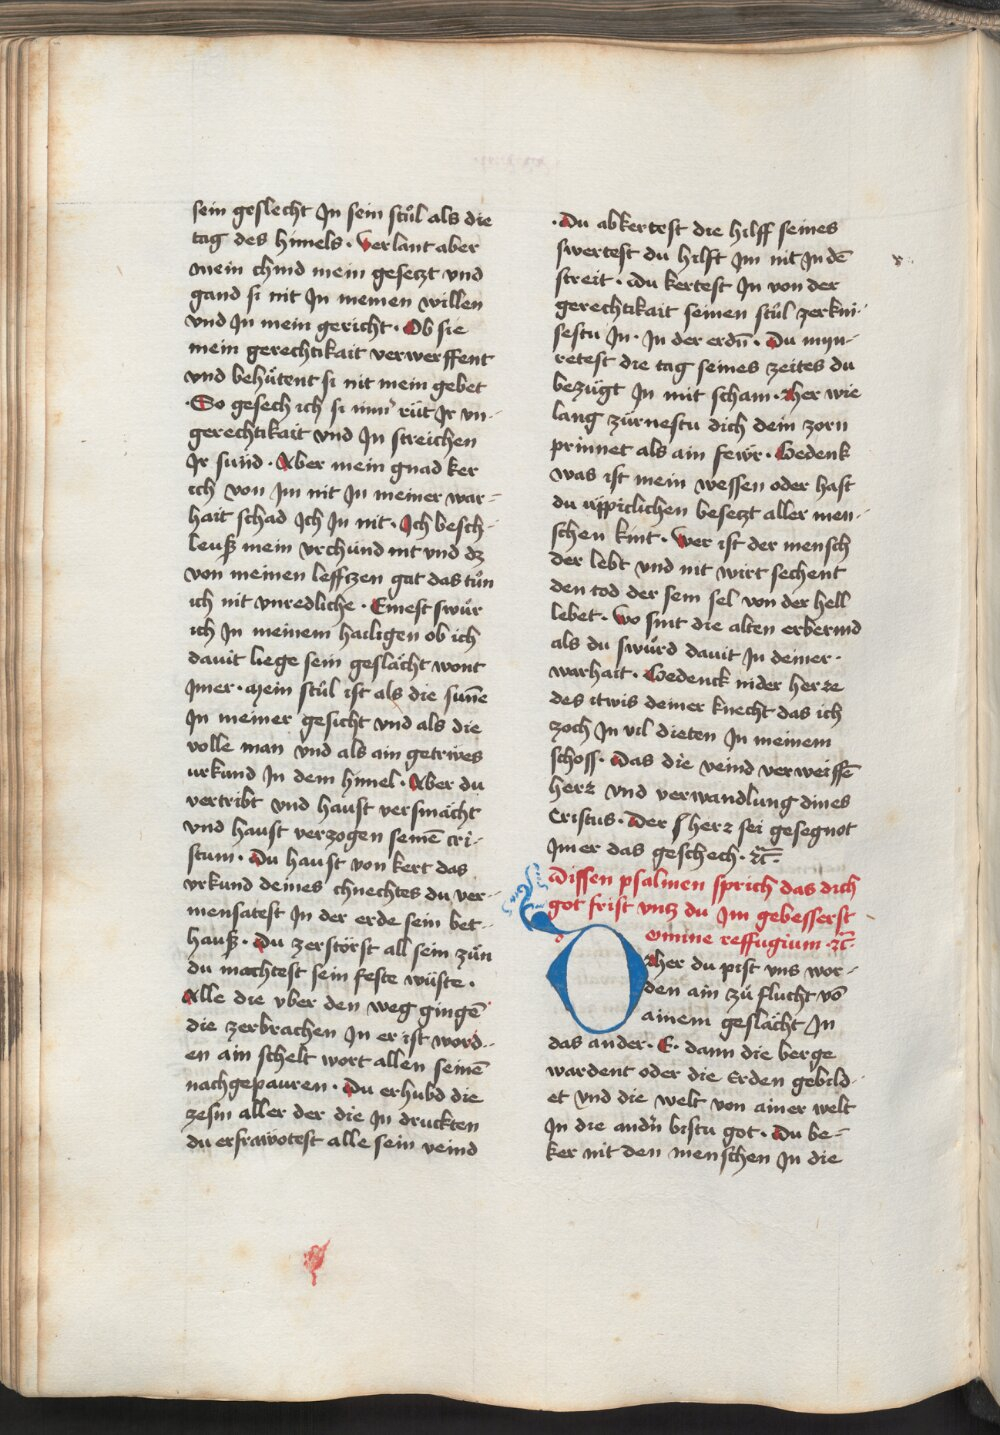 sein geslecht Jn sein stůl als die
tag des himels · Verlant aber
mein chind mein gesetzt vnd
gand si nit Jn meinen willen
vnd Jn mein gericht · Ob sie
mein gerechtikait verwerffent
vnd behůtent si nit mein gebet
· So gesech ich si mitt růt Jr vn-
gerechtikait vnd Jn streichen
Jr sünd · Aber mein gnad ker
ich von Jm nit Jn meiner war-
hait schad Jch Jn nit · Jch besch-
leuß mein vrchünd nit vnd dz
von meinen leffczen gat das tůn
ich nit vnredliche · Einest swůr
ich Jn meinem hailigen ob ich
dauit liege sein geslächt wont
Jmer · mein stůl ist als die sunē
Jn meiner gesicht vnd als die
volle man vnd als ain getriwes
urkund Jn dem himel · Aber du
vertribt vnd haust versmächt
vnd haust verzogen seinē cri-
stum · Du haust von kert das
vrkund deines chnechtes du ver-
mensatest Jn der erde sein bet-
hauß · Du zerstörst all sein zün
du machtest sein feste wüste ·
Alle die vber den weg gingē
die zerbrachen Jn er ist word-
en ain schelt wort allen seinē
nachgepauren · Du erhubd die
zesm aller der die Jn druckten
du erfrawotest alle sein veind
· Du abkertest die hilff seines
swertest du hilft Jm nit Jn dē
streit · du kertest Jn von der
gerechtikait seinen stůl zerkni-
sestu Jn · Jn der erdn̄ · Du myn-
retest die tag seines zeites du
bezügt Jn mit scham · Her wie
lang zürnestu dich dein zorn
prinnet als ain fewr · Gedenk
was ist mein wessen oder hast
du üppiclichen besetzt aller men-
schen kint · Wer ist der mensch
der lebt vnd nit wirt sechent
den tod der sein sel von der hell
lebet · Wo sint die alten erbermd
als du swůrd dauit Jn deiner ·
warhait · Gedenck nider herze
des itwis deiner knecht das ich
zoch Jn vil dieten Jn meinem
schoss · Das die veind verweissē
herz vnd verwandlung dines
Cristus · Der herz sei gesegnot
Jmer das geschech · ꝛc̄ ·
Dissen psalmen sprich das dich
got frist vntz du Jm gebesserst
omine reffugium · ꝛc̄ ·
O her du pist vns wor-
den ain zů flucht vō
ainem geslächt Jn
das ander · E · dann die berge
wardent oder die Erden gebild-
et vnd die welt von ainer welt
Jn die andn̄ bistu got · Du be-
ker nit den menschen Jn die